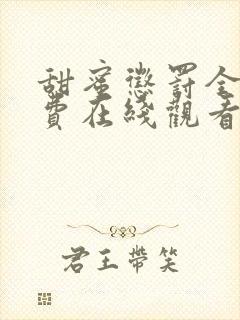 甜蜜懲罰全
費在綫觀看
君王帶笑